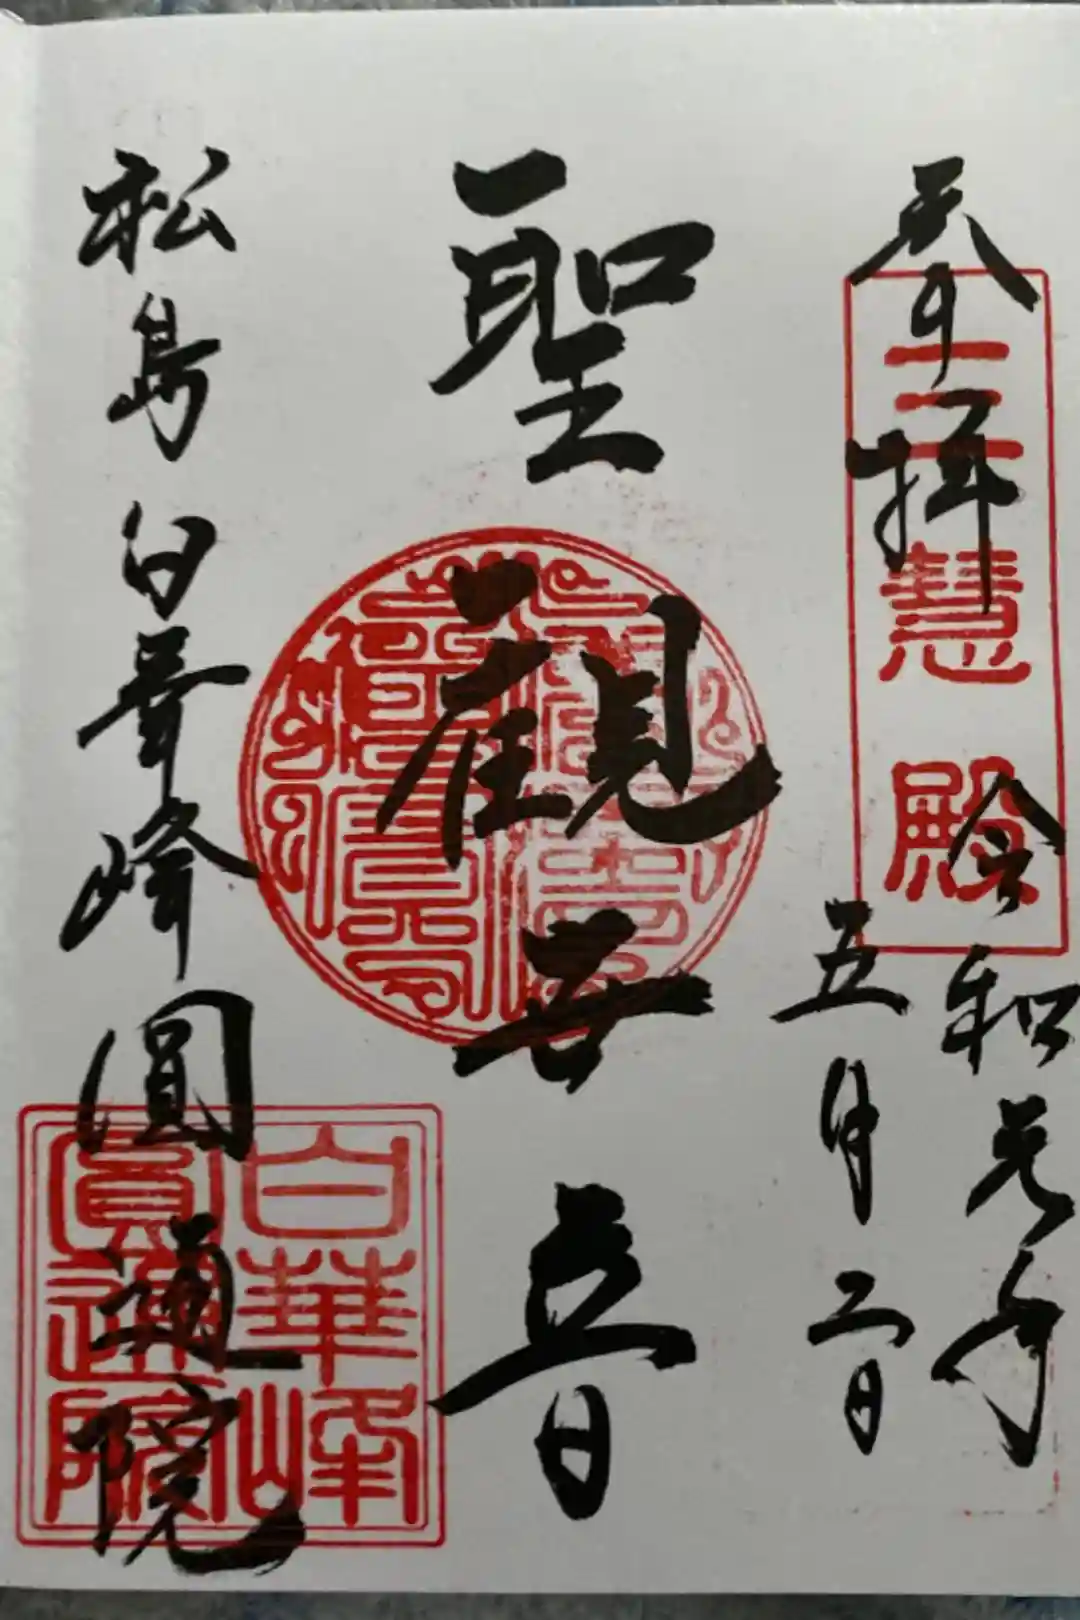 奉拝
三慧殿
令和元年
五月二日
聖観世音
松島白華峰圓通院
白華峰
圓通院